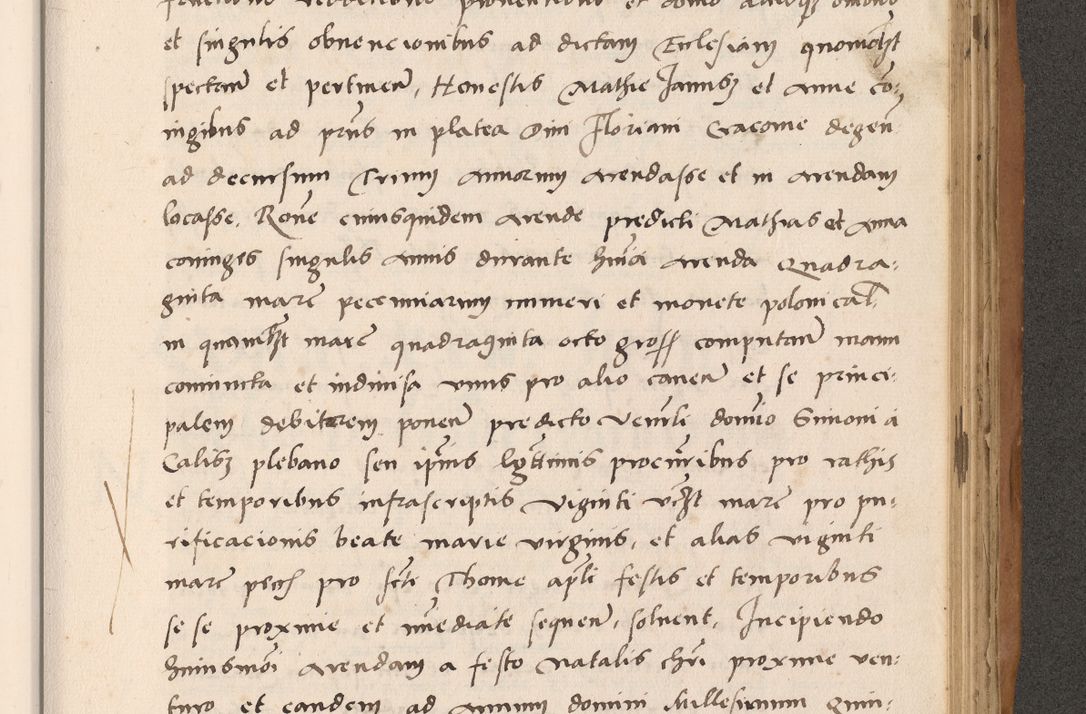 et singulis obvencionibus ad dictam Ecclesiam quomodolibet
spectan̄ et pertinen̄, Honestis Mathie Janusz et Anne co:
niugibus ad prn̄s in platea Dini Floriani Cracovie degen̄
ad decursum Trium annorum arendasse et in arendam
locasse. Rone cuiusquidem arende predicti Mathias et Anna
coniuges singulis annis durante hm̄oi arenda Quadra:
ginta marc̄ pecuniarum numeri et monete polonical̄
in quamlibet marc̄ quadraginta octo gross computan̄ manu
coniuncta et indivisa unus pro alio caven̄ et se princi:
palem debitorem ponen̄ predicto Ven̄rli domīo Simoni a
Calisz plebano seu ip̄ius lgttimis procur̄ribus pro rathis
et temporibus infrascriptis viginti vc̄lt marc̄ pro pu:
rificacionis beate marie virginis, et alias viginti
marc̄ pecc̄ pro scti Thome apl̄i festis et temporibus
se se proxime et im̄ediate sequen̄, solvent, Incipiendo
huiusmōi arendam a festo Natalis chr̄i proxime ven:
turo et eandem ad annum domini Millesimum Quin: